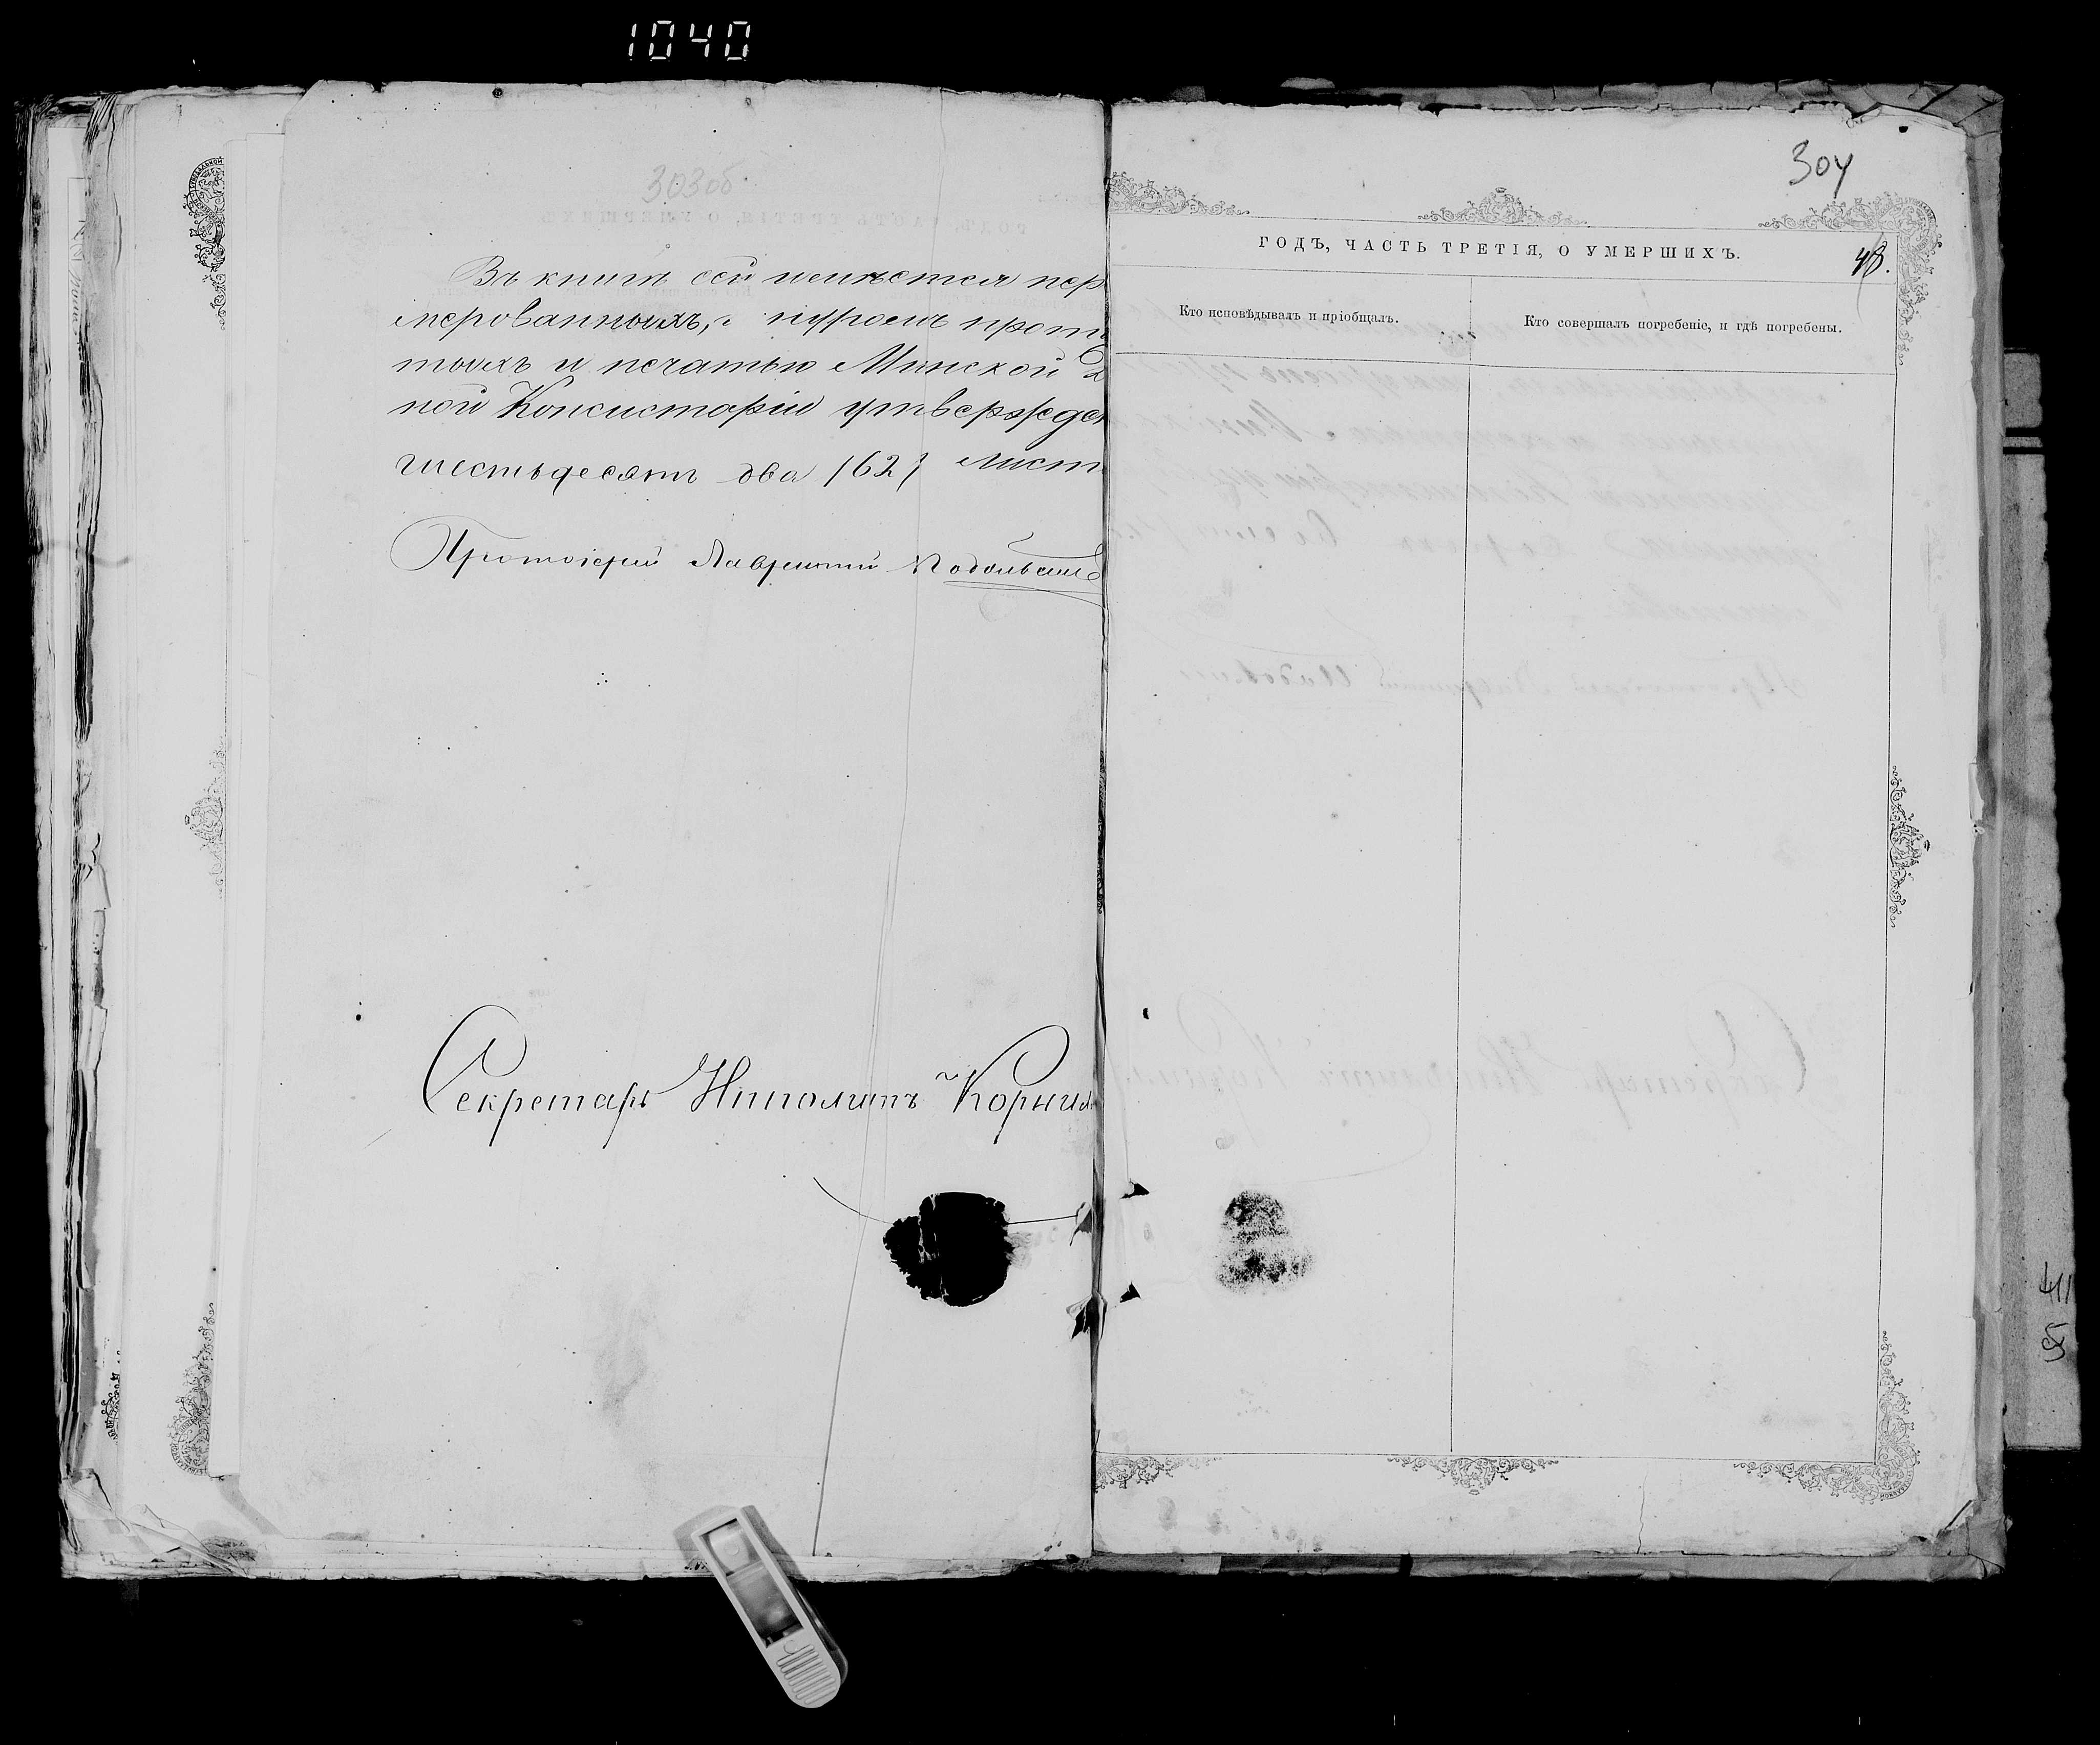 1040
303об
Въ книгѣ сей имѣется
мерованныхъ, шнуромъ
тыхъ и печатью Минской
ной Консисторіи утвержден
шестьдесятъ два (62) лист
Протоіерей Лаврентій Подольскій
Секретарь Ипполитъ Корнил
304
ГОДЪ, ЧАСТЬ ТРЕТІЯ, О УМЕРШИХЪ.
48.
Кто исповѣдывалъ и пріобщалъ.
Кто совершалъ погребеніе, и гдѣ погребены.